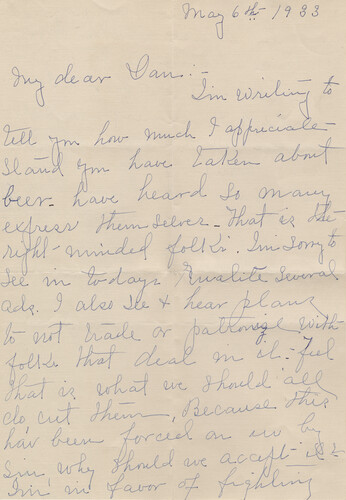 May 6th 1933
My dear Dan:-
I'm writing to
tell you how much I appreciate
stand you have taken about
beer. have heard so many
express themselves - that is the
right-minded folks. I'm sorry to
see in to-days Ruralite several
ads. I also see & hear plans
to not trade or patronize with
folks that deal in it. feel
that is what we should all
do, cut them, Because this
hav been forced on us by
sin why should we accept it?
I'm in favor of fighting